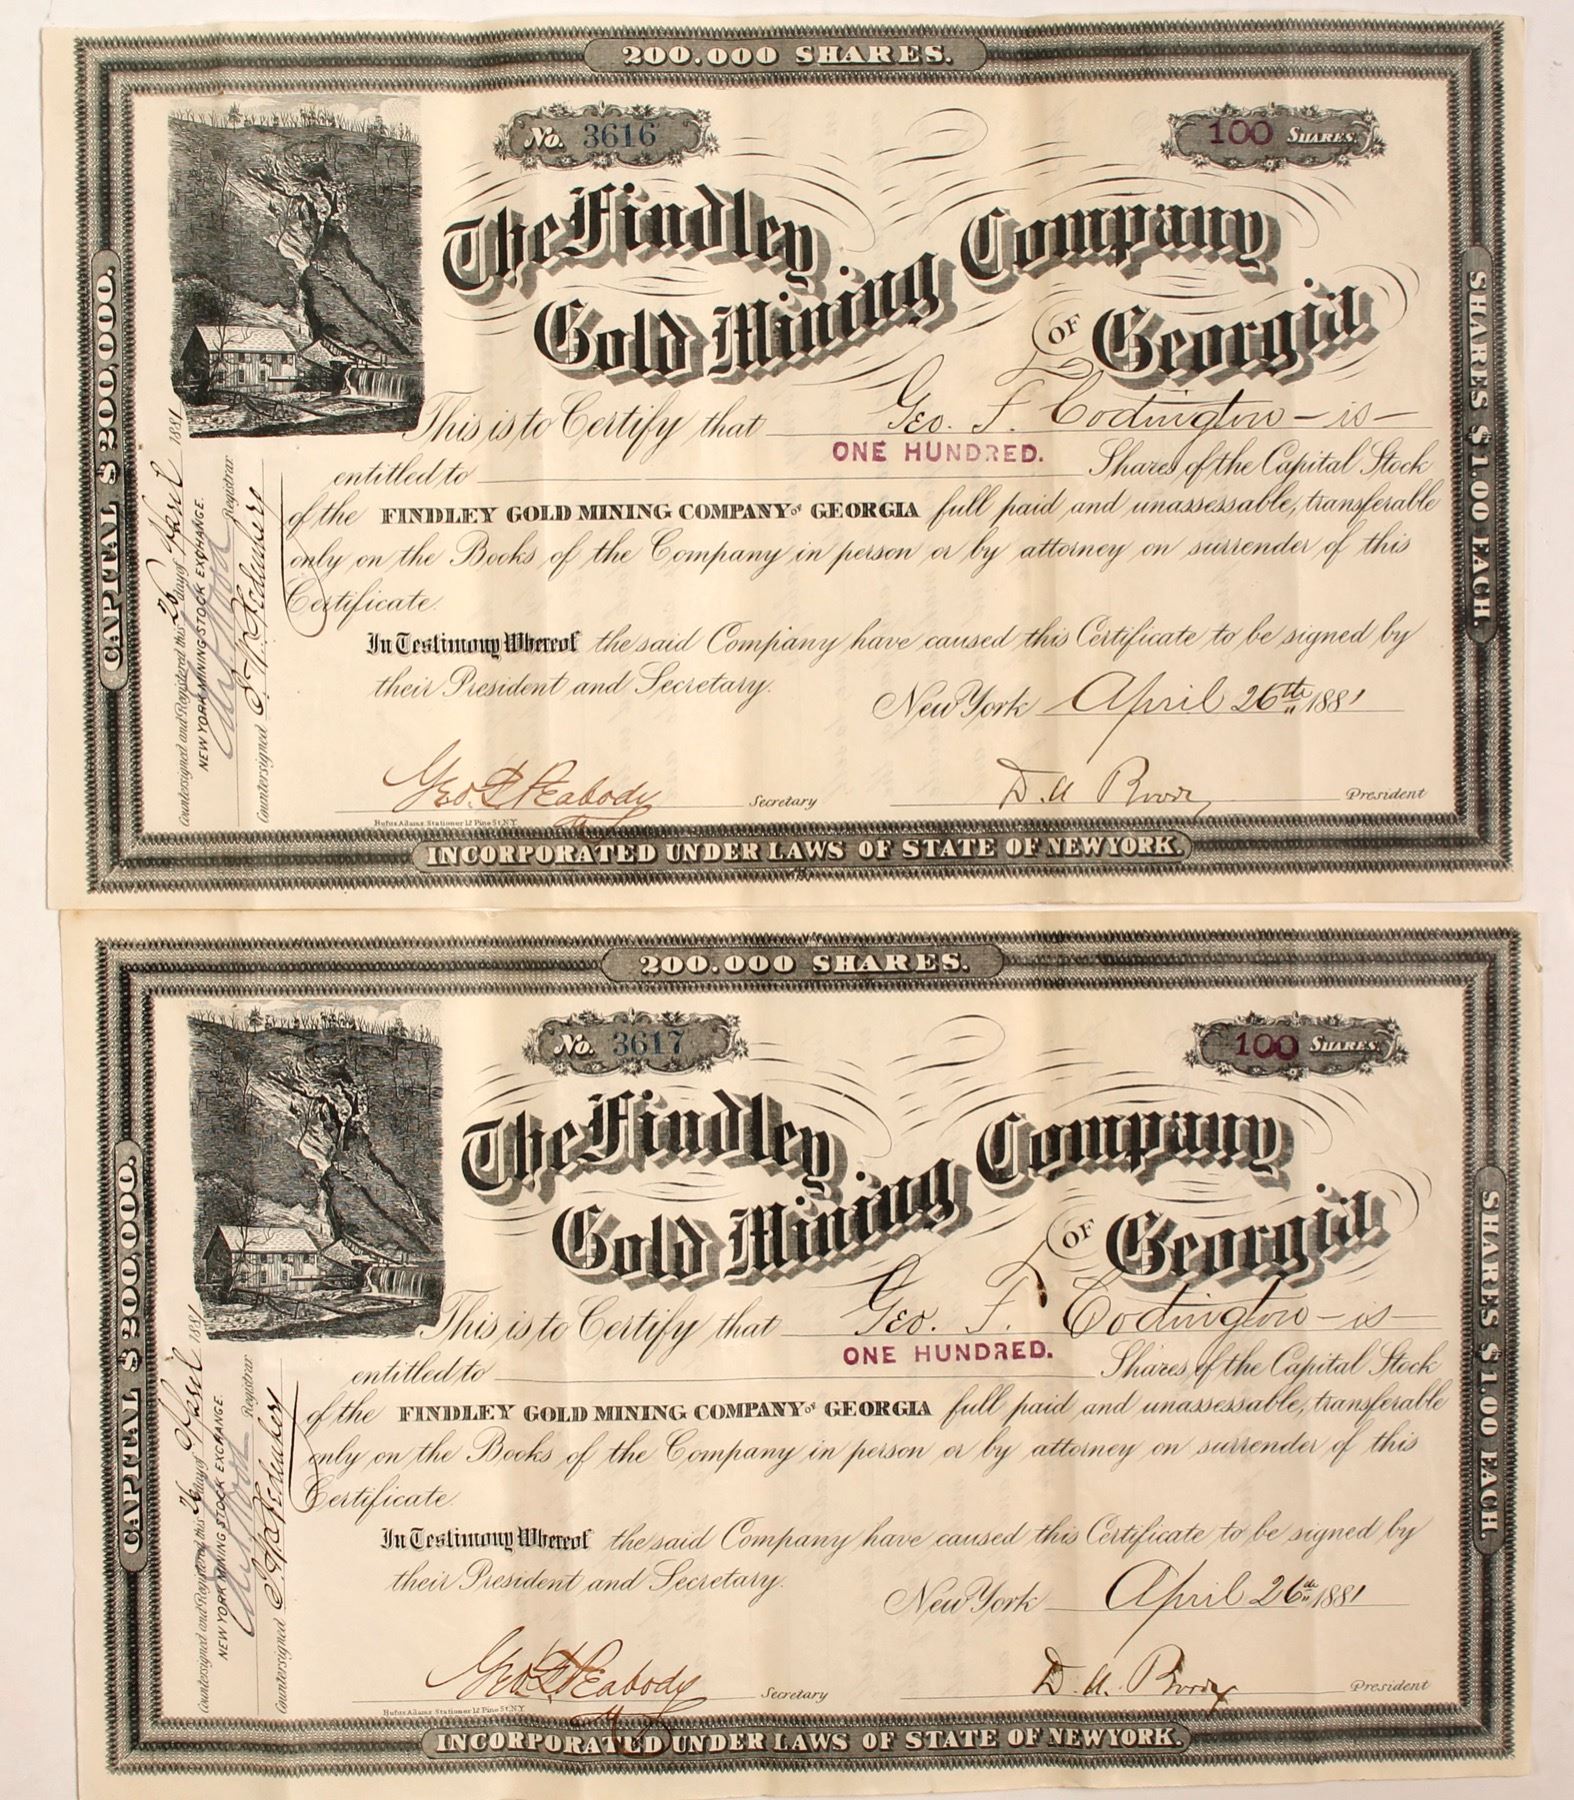 200.000 SHARES.
No. 3616
100 SHARES.
The Findley
Gold Mining
Company
OF Georgia
This is to Certify that Geo. F. Codington - is -
entitled to ONE HUNDRED. Shares of the Capital Stock
of the FINDLEY GOLD MINING COMPANY OF GEORGIA full paid and unassessable, transferable
only on the Books of the Company in person or by attorney on surrender of this
Certificate.
In Testimony Whereof the said Company have caused this Certificate to be signed by
their President and Secretary.
New York April 26th 1881
Geo. Peabody Secretary
President
Rufus Adams, Stationer 12 Pine St. N.Y.
INCORPORATED UNDER LAWS OF STATE OF NEW YORK.
CAPITAL $200,000.
SHARES $1.00 EACH.
Countersigned and Registered this 26 day of April 1881
NEW YORK MINING STOCK EXCHANGE.
Registrar
Countersigned
200.000 SHARES.
No. 3617
100 SHARES.
The Findley
Gold Mining
Company
OF Georgia
This is to Certify that Geo. F. Codington - is -
entitled to ONE HUNDRED. Shares of the Capital Stock
of the FINDLEY GOLD MINING COMPANY OF GEORGIA full paid and unassessable, transferable
only on the Books of the Company in person or by attorney on surrender of this
Certificate.
In Testimony Whereof the said Company have caused this Certificate to be signed by
their President and Secretary.
New York April 26th 1881
Geo. Peabody Secretary
President
Rufus Adams, Stationer 12 Pine St. N.Y.
INCORPORATED UNDER LAWS OF STATE OF NEW YORK.
CAPITAL $200,000.
SHARES $1.00 EACH.
Countersigned and Registered this 26 day of April 1881
NEW YORK MINING STOCK EXCHANGE.
Registrar
Countersigned